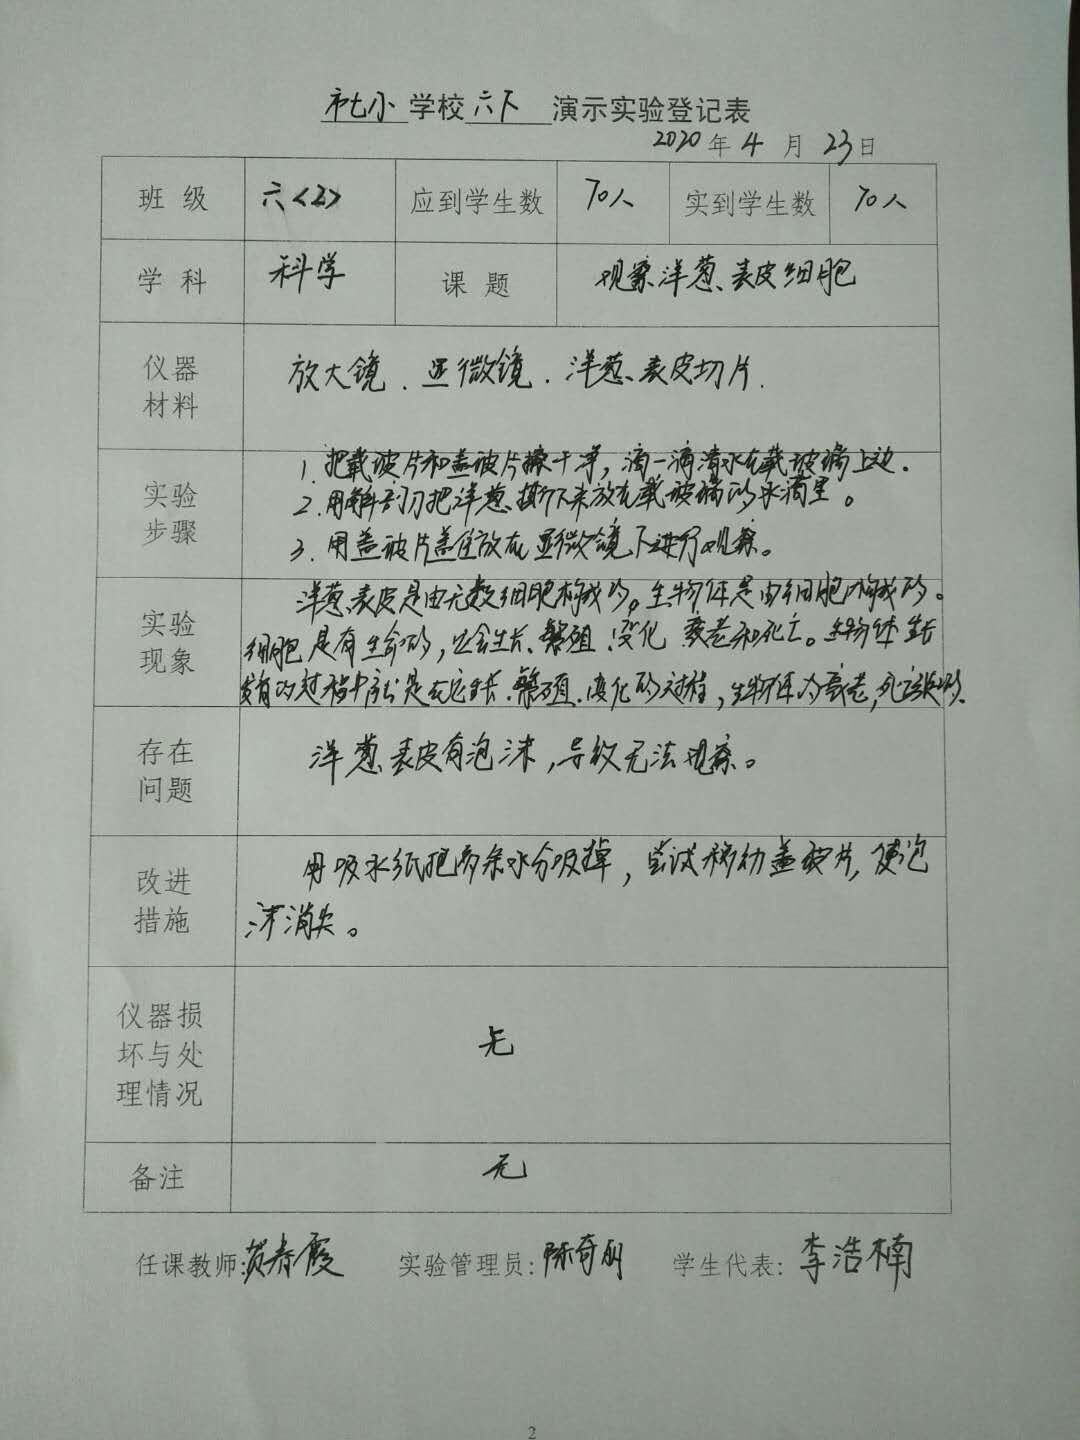 市七小学校六下 演示实验登记表
2020年4月23日
班级 六<2> 应到学生数 70人 实到学生数 70人
学科 科学 课题 观察洋葱表皮细胞
仪器材料 放大镜.显微镜.洋葱表皮切片.
实验步骤
1.把载玻片和盖玻片擦干净,滴一滴清水在载玻璃上边.
2.用解剖刀把洋葱撕下来放在载玻璃的水滴里。
3.用盖玻片盖住放在显微镜下进行观察。
实验现象
洋葱表皮是由无数细胞构成的。生物体是由细胞构成的。
细胞是有生命的,也会生长、繁殖、变化、衰老和死亡。生物体生长
发育的过程中就是在它生长.繁殖.变化的过程,生物体的衰老,死亡
存在问题 洋葱表皮有泡沫,导致无法观察。
改进措施 用吸水纸把多余水分吸掉,尝试移动盖玻片,使泡
沫消失。
仪器损坏与处理情况 无
备注 无
任课教师:贺春霞 实验管理员: 学生代表:李浩楠
2